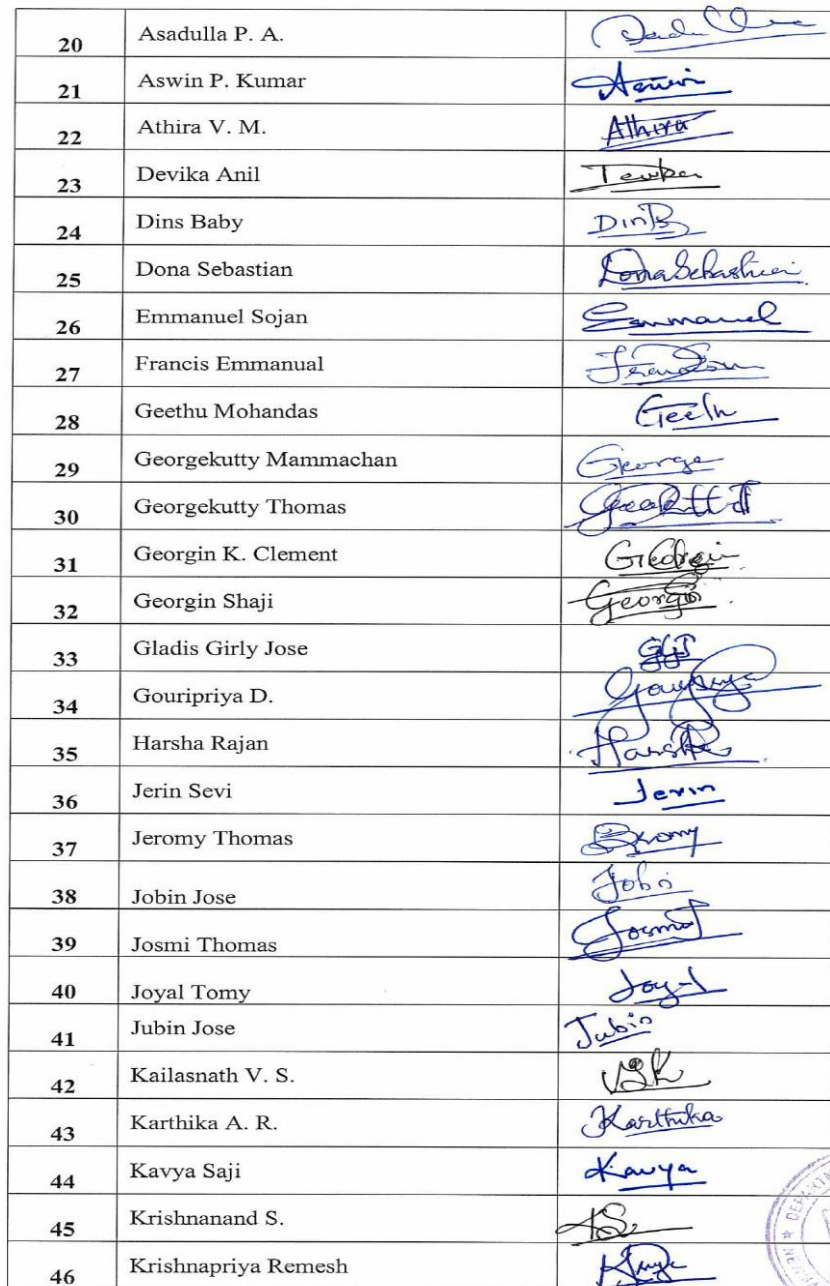 20 Asadulla P. A.
21 Aswin P. Kumar Aswin
22 Athira V. M. Athira
23 Devika Anil
24 Dins Baby DinB
25 Dona Sebastian Dona Sebastian
26 Emmanuel Sojan Emmanuel
27 Francis Emmanual
28 Geethu Mohandas Geethu
29 Georgekutty Mammachan George
30 Georgekutty Thomas
31 Georgin K. Clement Georgin
32 Georgin Shaji Georgin
33 Gladis Girly Jose GGJ
34 Gouripriya D.
35 Harsha Rajan Harsha
36 Jerin Sevi Jerin
37 Jeromy Thomas Jeromy
38 Jobin Jose Jobin
39 Josmi Thomas
40 Joyal Tomy Joyal
41 Jubin Jose Jubin
42 Kailasnath V. S. VSK
43 Karthika A. R. Karthika
44 Kavya Saji Kavya
45 Krishnanand S. KS
46 Krishnapriya Remesh